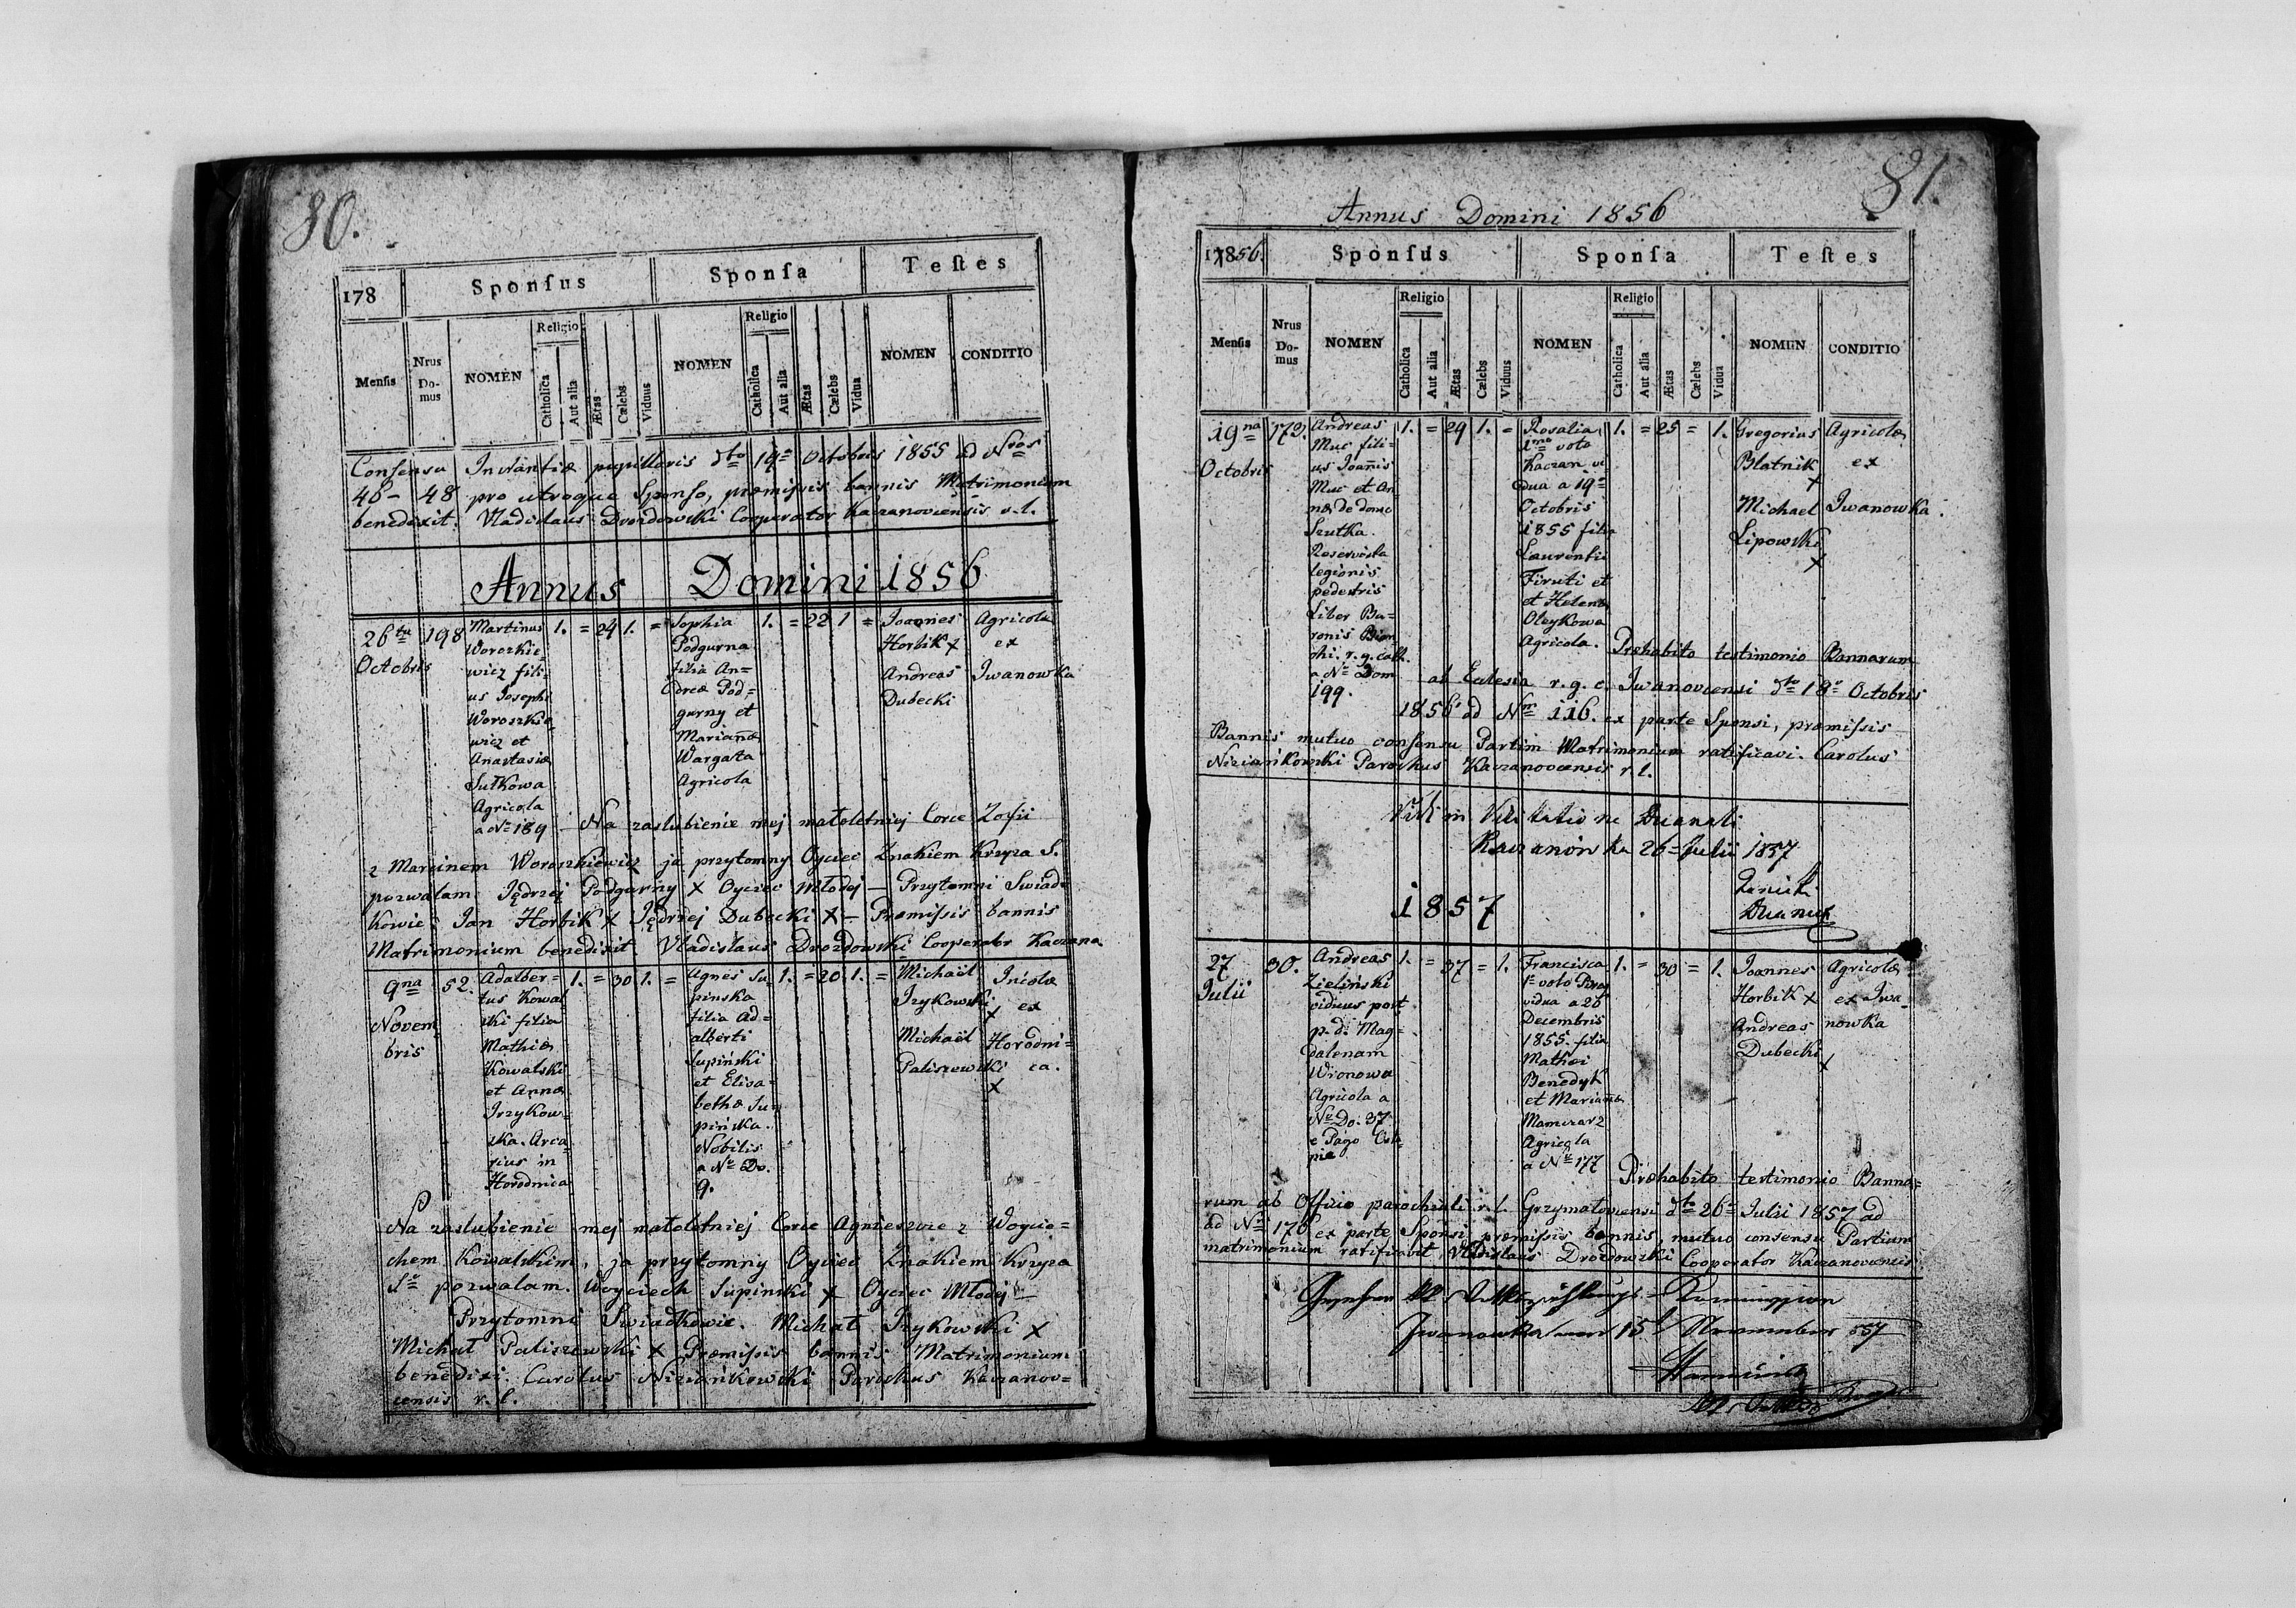 80.
178
Sponſus
Sponſa
Teſtes
Menſis
Nrus Do-mus
NOMEN
Religio
Catholica
Aut alia
Ætas
Cælebs
Viduus
NOMEN
Religio
Catholica
Aut alia
Ætas
Cælebs
Vidua
NOMEN
CONDITIO
Consensu Instantiæ pupillaris dto 19a Octobris 1855 ad Nros
46 – 48 pro utroque Sponso, præmissis bannis Matrimonium
benedixit. Vladislaus Drozdowski Cooperator Kaczanovcensis r. l.
Annus Domini 1856
26ta Octobris
198
Martinus
Woroszkie=
wicz fili=
us Josephi
Woroszkie
wicz et
Anastasiæ
Sutkowa
Agricola
a No 189
1. = 24 1. =
Sophia
Podgurna
filia An=
dreæ Pod=
gurny et
Marianæ
Wargata
Agricola
1. = 22 1 =
Joannes
Horbik x
Andreas
Dubecki
Agricolæ
ex
Iwanowka
Na zaslubienie mej małoletniej Corce Zofii
z Marcinem Woroszkiewicz ja przytomny Oyciec Znakiem Krzyza S.
pozwalam Jędrzej Podgurny x Oyciec Młodej — Przytomni Swiad=
kowie: Jan Horbik x Jędrzej Dubecki x — Præmissis bannis
Matrimonium benedixit Vladislaus Drozdowski Cooperator Kaczano
9na
Novem
bris
52.
Adalber=
tus Kowal
ski filia
Mathiæ
Kowalski
et Annæ
Irzykow=
ska. Arca
rius in
Horodnica
1. = 30 1. =
Agnes Su
pinska
filia Ad=
alberti
Supiński
et Elisa=
bethæ Su
pińska.
Nobilis
a No Do.
9.
1. = 20. 1. =
Michaël
Irzykowski
x
Michaël
Paliszewski
x
Incolæ
ex
Horodni=
ca.
Na zaslubienie mej małoletniej Corce Agnieszce z Woycie=
chem Kowalskim, ja przytomny Oyciec Znakiem Krzyza
So pozwalam. Woyciech Supinski x Oyciec Młodej —
Przytomni Swiadkowie. Michał Irzykowski x
Michał Paliszewski x Præmissis bannis Matrimonium
benedixi. Carolus Niziańkowski Parochus Kaczanov=
censis r. l.
81.
Annus Domini 1856
1856.
Sponſus
Sponſa
Teſtes
Menſis
Nrus Do-mus
NOMEN
Religio
Catholica
Aut alia
Ætas
Cælebs
Viduus
NOMEN
Religio
Catholica
Aut alia
Ætas
Cælebs
Vidua
NOMEN
CONDITIO
19na
Octobris
173.
Andreas
Muc fili=
us Joannis
Muc et An
næ de domo
Szutka.
Reservista
legionis
pedestris
Liber Ba=
ronis
r. g. cath.
a No Dom
199.
1. = 29 1. =
Rosalia
1mo voto
Kaczan vi
dua a 19a
Octobris
1855 filia
Laurentii
Firuti et
et Helenæ
Oleykowa
Agricola.
1. = 25 = 1.
Gregorius
Blatnik
x
Michael
Lipowski
x
Agricolæ
ex
Iwanowka.
Præhabito testimonio Bannarum
ab Eclesia r. g. c. Iwanovcensi dto 18a Octobris
1856 ad Nm 116. ex parte Sponsi, præmissis
Bannis mutuo consensu Partim Matrimonium ratificavi. Carolus
Niziańkowski Parochus Kaczanovcensis r. l.
Vidi in Visitatione Decanali
Kaczanówka 26a Julii 1857
Decanus
1857
27
Julii
30.
Andreas
Zieliński
viduus post
p. d. Mag=
dalenam
Wronowa
Agricola a
No Do. 37
e Pago
1. = 37 = 1.
Francisca
1o voto
vidua a 26
Decembris
1855. filia
Mathæi
Benedyk
et Mariannæ
Mamczarz
Agricola
a No 177
1. = 30 = 1.
Joannes
Horbik x
Andreas
Dubecki
x
Agricolæ
ex Iwa=
nowka
Præhabito testimonio Banna=
rum ab Officio parochiali r. l. Grzymałovcensi dto 26a Julii 1857 ad
ad Nm 176 ex parte Sponsi præmissis bannis, mutuo consensu Partium
matrimonium ratificavit Vladislaus Drozdowski Cooperator Kaczanovcensis
Iwanowka 15 November 857